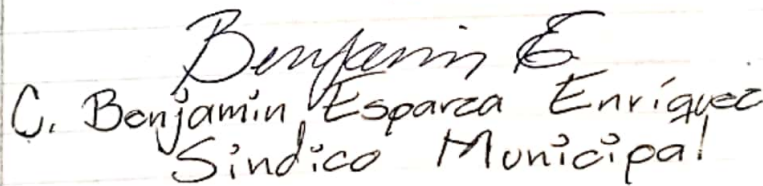 Benjamin E
C. Benjamin Esparza Enríquez
Síndico Municipal